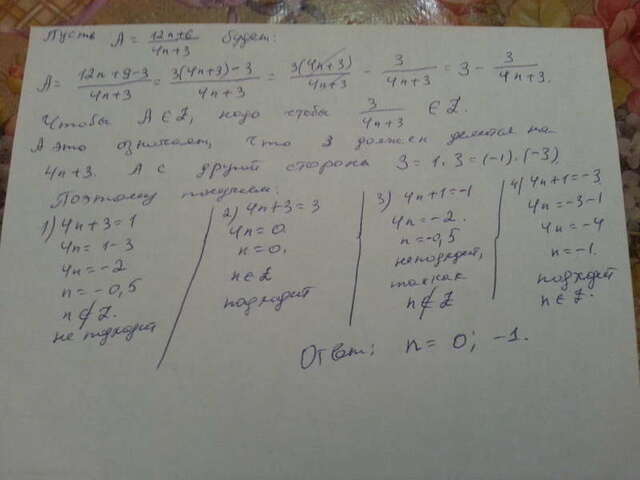 Пусть A = 12n+6/4n+3 будет:
A = 12n+9-3/4n+3 = 3(4n+3)-3/4n+3 = 3(4n+3)/4n+3 - 3/4n+3 = 3 - 3/4n+3.
Чтобы A ∈ Z, надо чтобы 3/4n+3 ∈ Z.
А это означает, что 3 должен делится на
4n+3. А с другой стороны 3 = 1·3 = (-1)·(-3)
Поэтому получаем:
1) 4n+3=1
4n=1-3
4n=-2
n=-0,5
n∉Z.
не подходит
2) 4n+3=3
4n=0
n=0.
n∈Z
подходит
3) 4n+1=-1
4n=-2.
n=-0,5
не подходит,
так как
n∉Z
4) 4n+1=-3
4n=-3-1
4n=-4
n=-1.
подходит
n∈Z.
Ответ: n=0; -1.